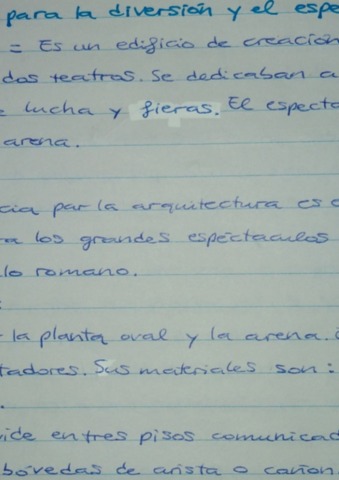 para la diversión y el espe
= Es un edificio de creación
dos teatros. Se dedicaban a
lucha y fieras. El especta
arena.
cia par la arquitectura es
a los grandes espectaculos
lo romano.
:
la planta oval y la arena.
tadores. Sus materiales son:
.
ide en tres pisos comunicad
bóvedas de arista o cañon.